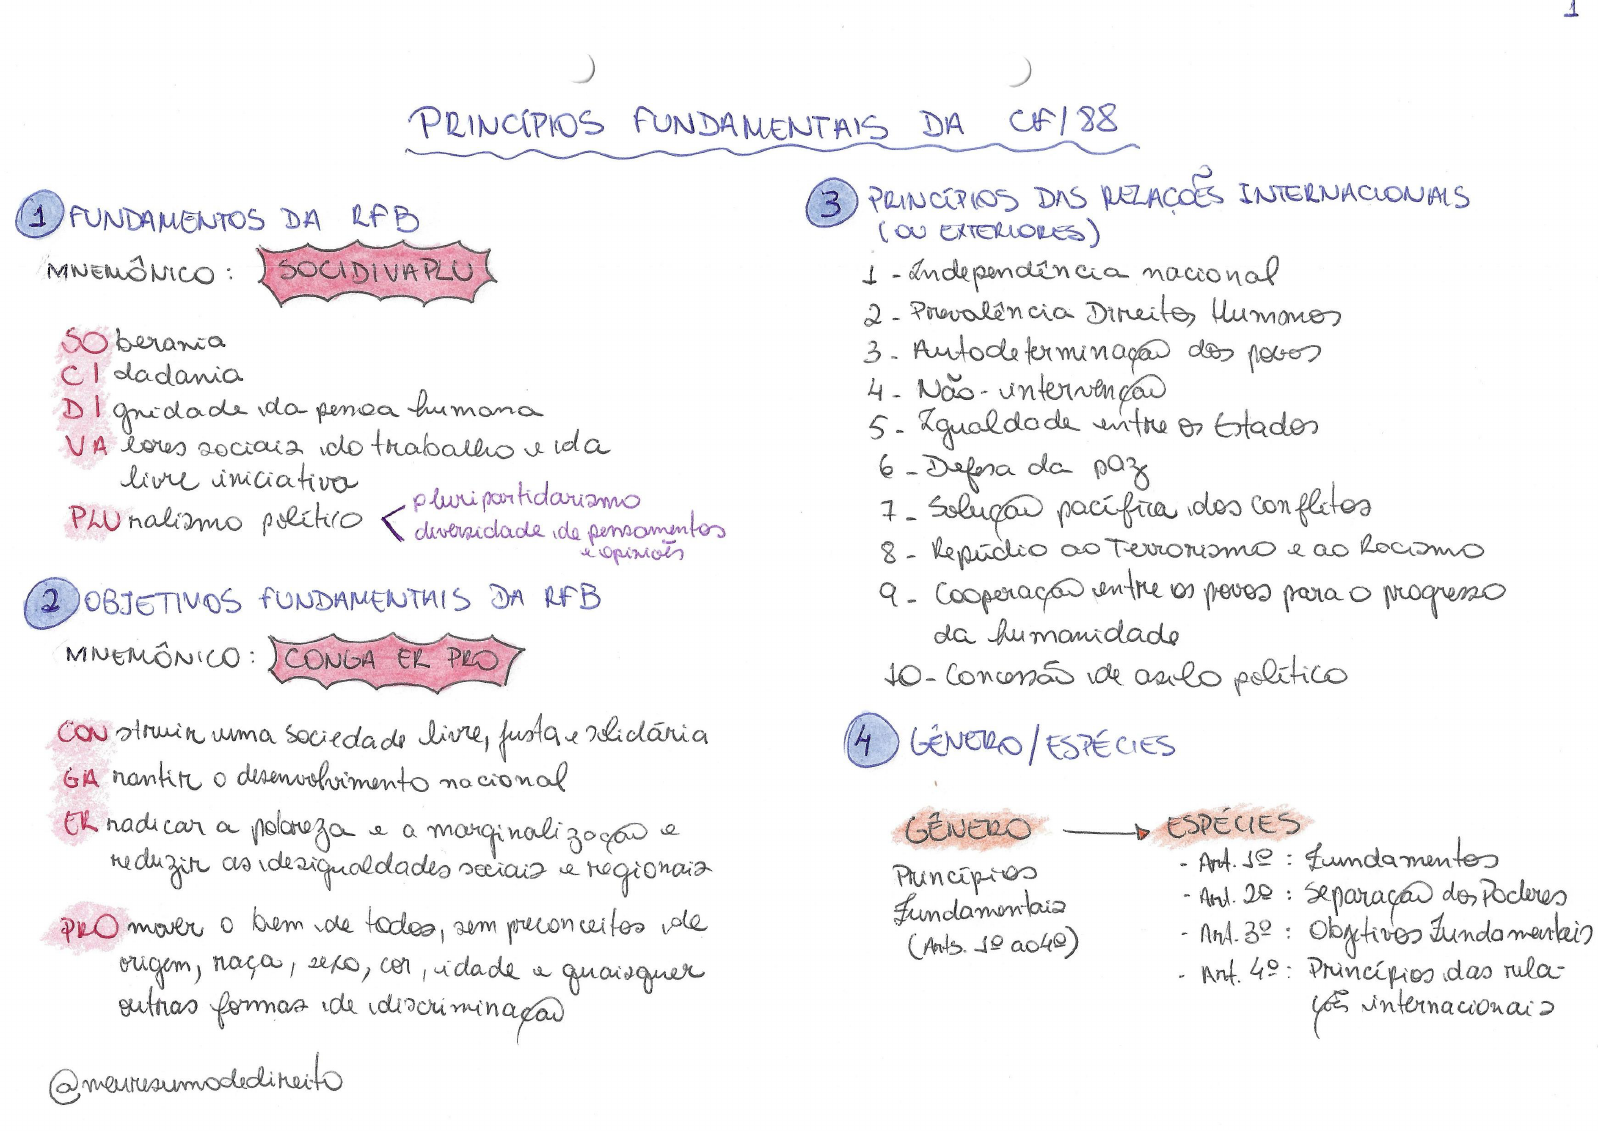 1
PRINCÍPIOS FUNDAMENTAIS DA CF/88
1 FUNDAMENTOS DA RFB
MNEMÔNICO: SOCIDIVAPLU
SOberania
CIdadania
DIgnidade da pessoa humana
VAlores sociais do trabalho e da
livre iniciativa
PLUralismo político
pluripartidarismo
diversidade de pensamentos
e opiniões
2 OBJETIVOS FUNDAMENTAIS DA RFB
MNEMÔNICO: CONGA ER PRO
CONstruir uma sociedade livre, justa e solidária
GArantir o desenvolvimento nacional
ERradicar a pobreza e a marginalização e
reduzir as desigualdades sociais e regionais
PROmover o bem de todos, sem preconceitos de
origem, raça, sexo, cor, idade e quaisquer
outras formas de discriminação
@meuresumodedireito
3 PRINCÍPIOS DAS RELAÇÕES INTERNACIONAIS
(OU EXTERIORES)
1 - Independência nacional
2 - Prevalência Direitos Humanos
3 - Autodeterminação dos povos
4 - Não-intervenção
5 - Igualdade entre os Estados
6 - Defesa da paz
7 - Solução pacífica dos conflitos
8 - Repúdio ao Terrorismo e ao Racismo
9 - Cooperação entre os povos para o progresso
da humanidade
10 - Concessão de asilo político
4 GÊNERO/ESPÉCIES
GÊNERO
Princípios
Fundamentais
(Arts. 1º ao 4º)
ESPÉCIES
- Art. 1º: Fundamentos
- Art. 2º: Separação dos Poderes
- Art. 3º: Objetivos Fundamentais
- Art. 4º: Princípios das rela-
ções internacionais